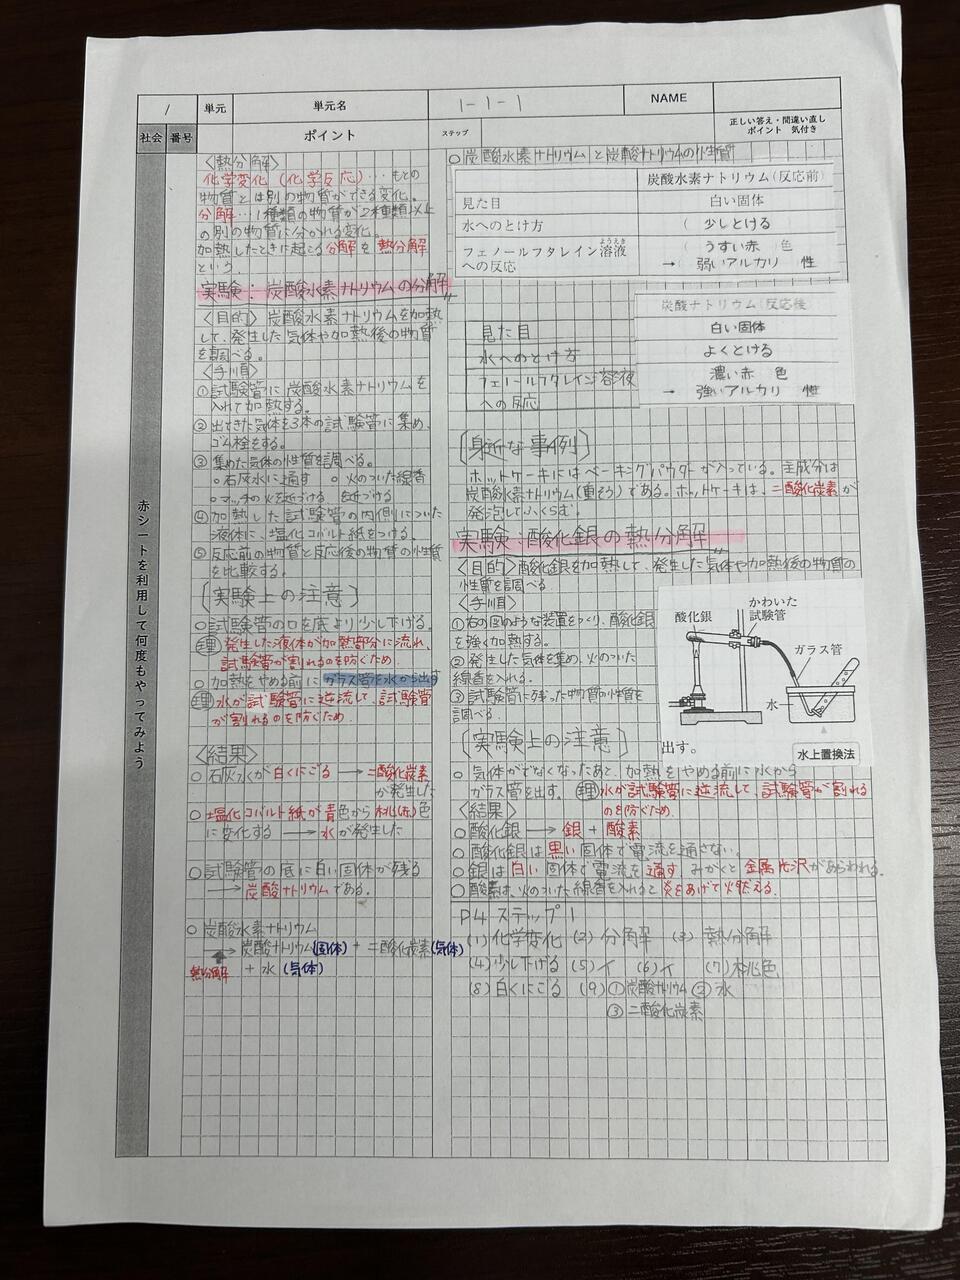 / 単元 単元名 1-1-1 NAME
社会 番号 ポイント ステップ 正しい答え・間違い直し
ポイント 気付き
赤シートを利用して何度もやってみよう
〈熱分解〉
化学変化(化学反応)…もとの
物質とは別の物質ができる変化。
分解…1種類の物質が2種類以上
の別の物質に分かれる変化。
加熱したときに起こる分解を熱分解
という。
実験:炭酸水素ナトリウムの分解
〈目的〉炭酸水素ナトリウムを加熱
して、発生した気体や加熱後の物質
を調べる。
〈手順〉
①試験管に炭酸水素ナトリウムを
入れて加熱する。
②出てきた気体を3本の試験管に集め、
ゴム栓をする。
③集めた気体の性質を調べる。
○石灰水に通す ○火のついた線香
○マッチの火を近づける を近づける
④加熱した試験管の内側についた
液体に、塩化コバルト紙をつける。
⑤反応前の物質と反応後の物質の性質
を比較する。
〔実験上の注意〕
○試験管の口を底より少し下げる。
理 発生した液体が加熱部分に流れ、
試験管が割れるのを防ぐため
○加熱をやめる前にガラス管を水から出す
理 水が試験管に逆流して、試験管
が割れるのを防ぐため
〈結果〉
○石灰水が白くにごる→二酸化炭素
が発生した
○塩化コバルト紙が青色から桃(赤)色
に変化する→水が発生した
○試験管の底に白い固体が残る
→炭酸ナトリウムである。
○炭酸水素ナトリウム
→炭酸ナトリウム(固体)+二酸化炭素(気体)
熱分解 +水(気体)
○炭酸水素ナトリウムと炭酸ナトリウムの性質
炭酸水素ナトリウム(反応前)
見た目 白い固体
水へのとけ方 ( 少しとける
フェノールフタレイン溶液 ようえき ( うすい赤 色
への反応 → 弱いアルカリ 性
炭酸ナトリウム(反応後
見た目 白い固体
水へのとけ方 よくとける
フェノールフタレイン溶液 濃い赤 色
への反応 → 強いアルカリ 性
〔身近な事例〕
ホットケーキにはベーキングパウダーが入っている。主成分は
炭酸水素ナトリウム(重そう)である。ホットケーキは、二酸化炭素が
発泡してふくらむ。
実験:酸化銀の熱分解
〈目的〉酸化銀を加熱して、発生した気体や加熱後の物質の
性質を調べる。
〈手順〉
①右の図のような装置をつくり、酸化銀
を強く加熱する。
②発生した気体を集め、火のついた
線香を入れる。
③試験管に残った物質の性質を
調べる。
酸化銀
かわいた
試験管
ガラス管
水
出す。
水上置換法
〔実験上の注意〕
○気体がでなくなったあと、加熱をやめる前に水から
ガラス管を出す。 理 水が試験管に逆流して、試験管が割れる
のを防ぐため
〈結果〉
○酸化銀→銀+酸素
○酸化銀は黒い固体で電流を通さない。
○銀は白い固体で電流を通す みがくと金属光沢があらわれる。
○酸素は、火のついた線香を入れると炎をあげて燃える。
P4 ステップ1
(1)化学変化 (2)分解 (3)熱分解
(4)少し下げる (5)イ (6)イ (7)桃色
(8)白くにごる (9)①炭酸ナトリウム ②水
③二酸化炭素